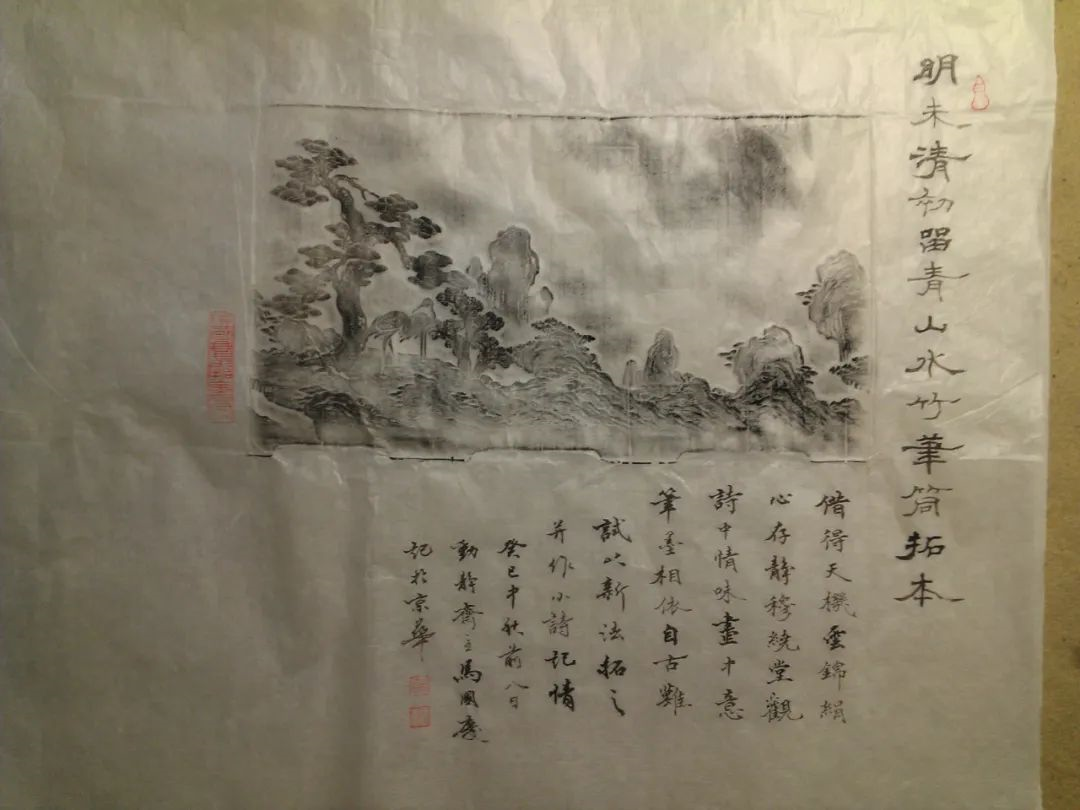 明末清初留青山水竹筆筒拓本
借得天機雲錦絹
心存靜穆繞堂觀
詩中情味畫中意
筆墨相依自古難
試以新法拓之
并作小詩記情
癸巳中秋前八日
動靜齋主馬國慶
記於京華